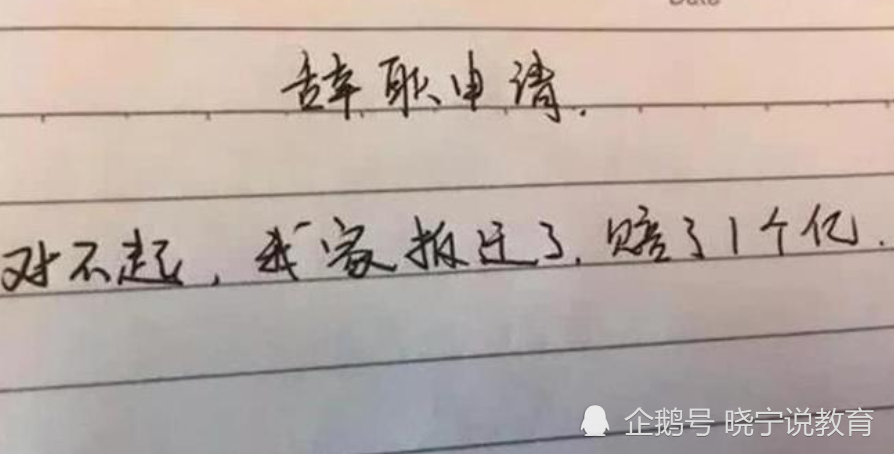 Date
辞职申请.
对不起,我家拆迁了,赔了1个亿.
企鹅号 晓宁说教育